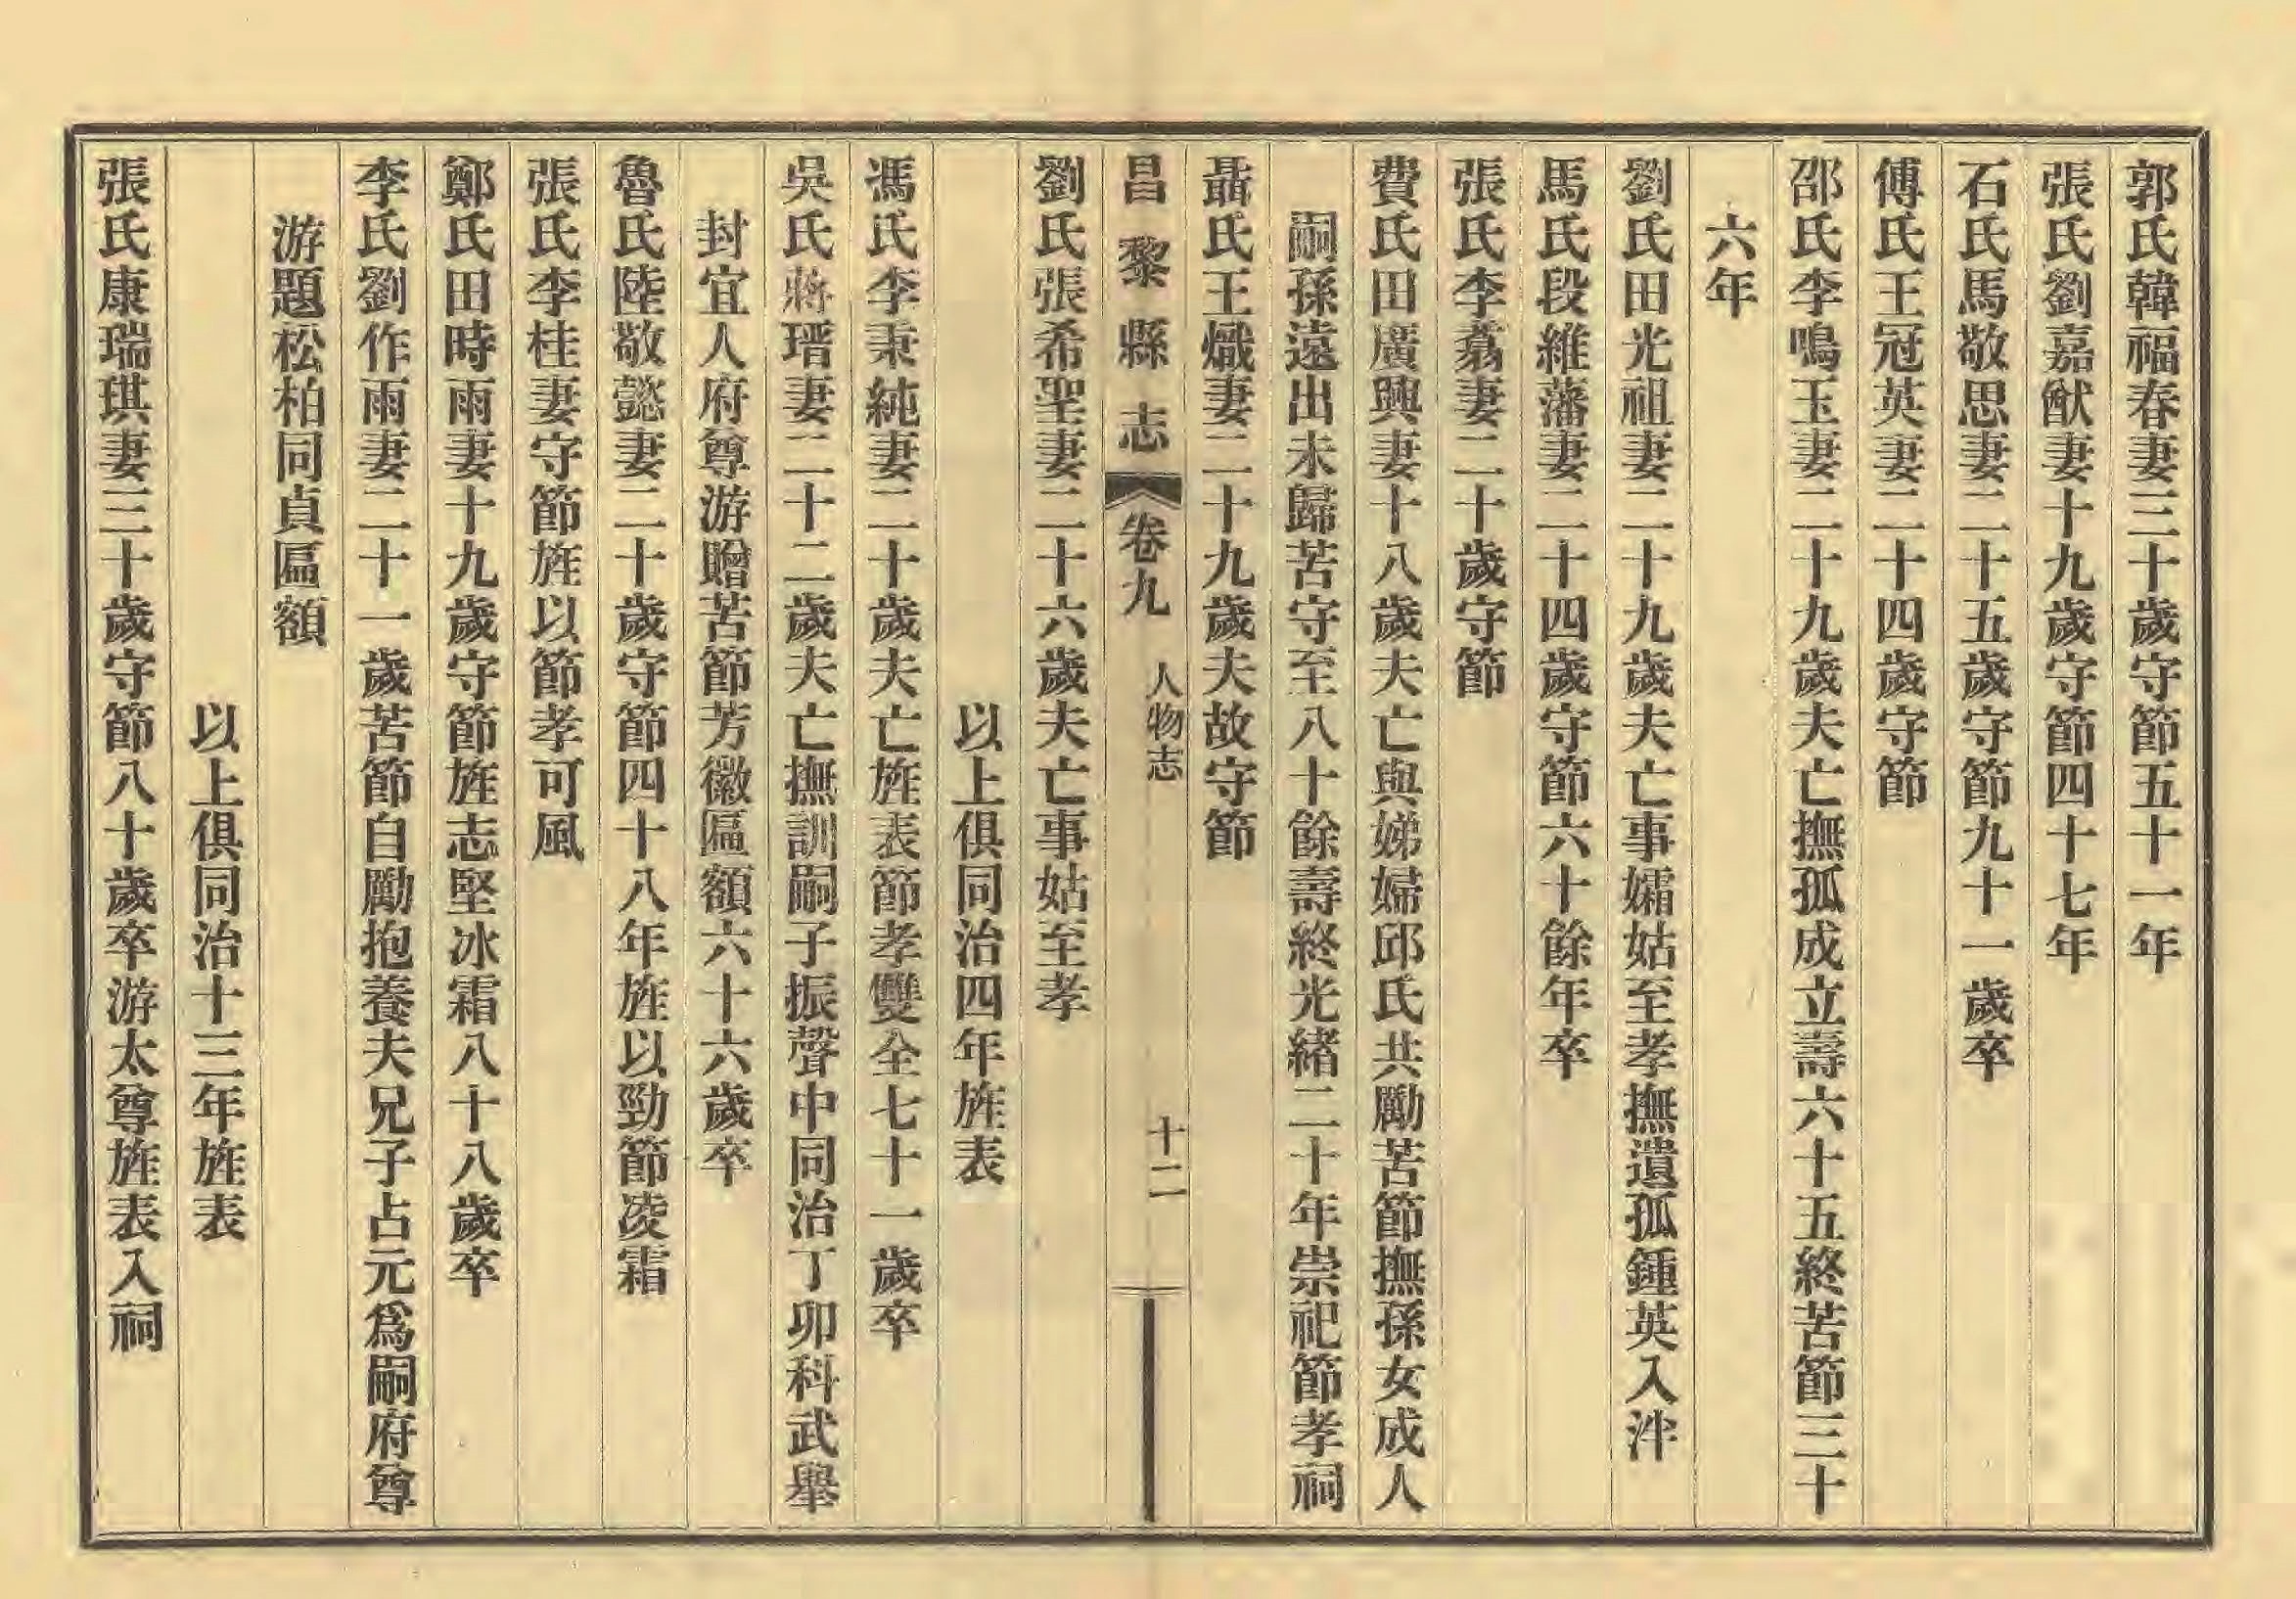 郭氏韓福春妻三十歲守節五十一年
張氏劉嘉猷妻十九歲守節四十七年
石氏馬敬思妻二十五歲守節九十一歲卒
傅氏王冠英妻二十四歲守節
邵氏李鳴玉妻二十九歲夫亡撫孤成立壽六十五終苦節三十
六年
劉氏田光祖妻二十九歲夫亡事孀姑至孝撫遺孤鍾英入泮
馬氏段維藩妻二十四歲守節六十餘年卒
張氏李翥妻二十歲守節
費氏田廣興妻十八歲夫亡與娣婦邱氏共勵苦節撫孫女成人
嗣孫遠出未歸苦守至八十餘壽終光緒二十年崇祀節孝祠
聶氏王熾妻二十九歲夫故守節
昌黎縣志 卷九 人物志 十二
劉氏張希聖妻二十六歲夫亡事姑至孝
以上俱同治四年旌表
馮氏李秉純妻二十歲夫亡旌表節孝雙全七十一歲卒
吳氏蔣瑨妻二十二歲夫亡撫訓嗣子振聲中同治丁卯科武舉
封宜人府尊游贈苦節芳徽匾額六十六歲卒
魯氏陸敬懿妻二十歲守節四十八年旌以勁節凌霜
張氏李桂妻守節旌以節孝可風
鄭氏田時雨妻十九歲守節旌志堅冰霜八十八歲卒
李氏劉作雨妻二十一歲苦節自勵抱養夫兄子占元爲嗣府尊
游題松柏同貞匾額
以上俱同治十三年旌表
張氏康瑞琪妻三十歲守節八十歲卒游太尊旌表入祠